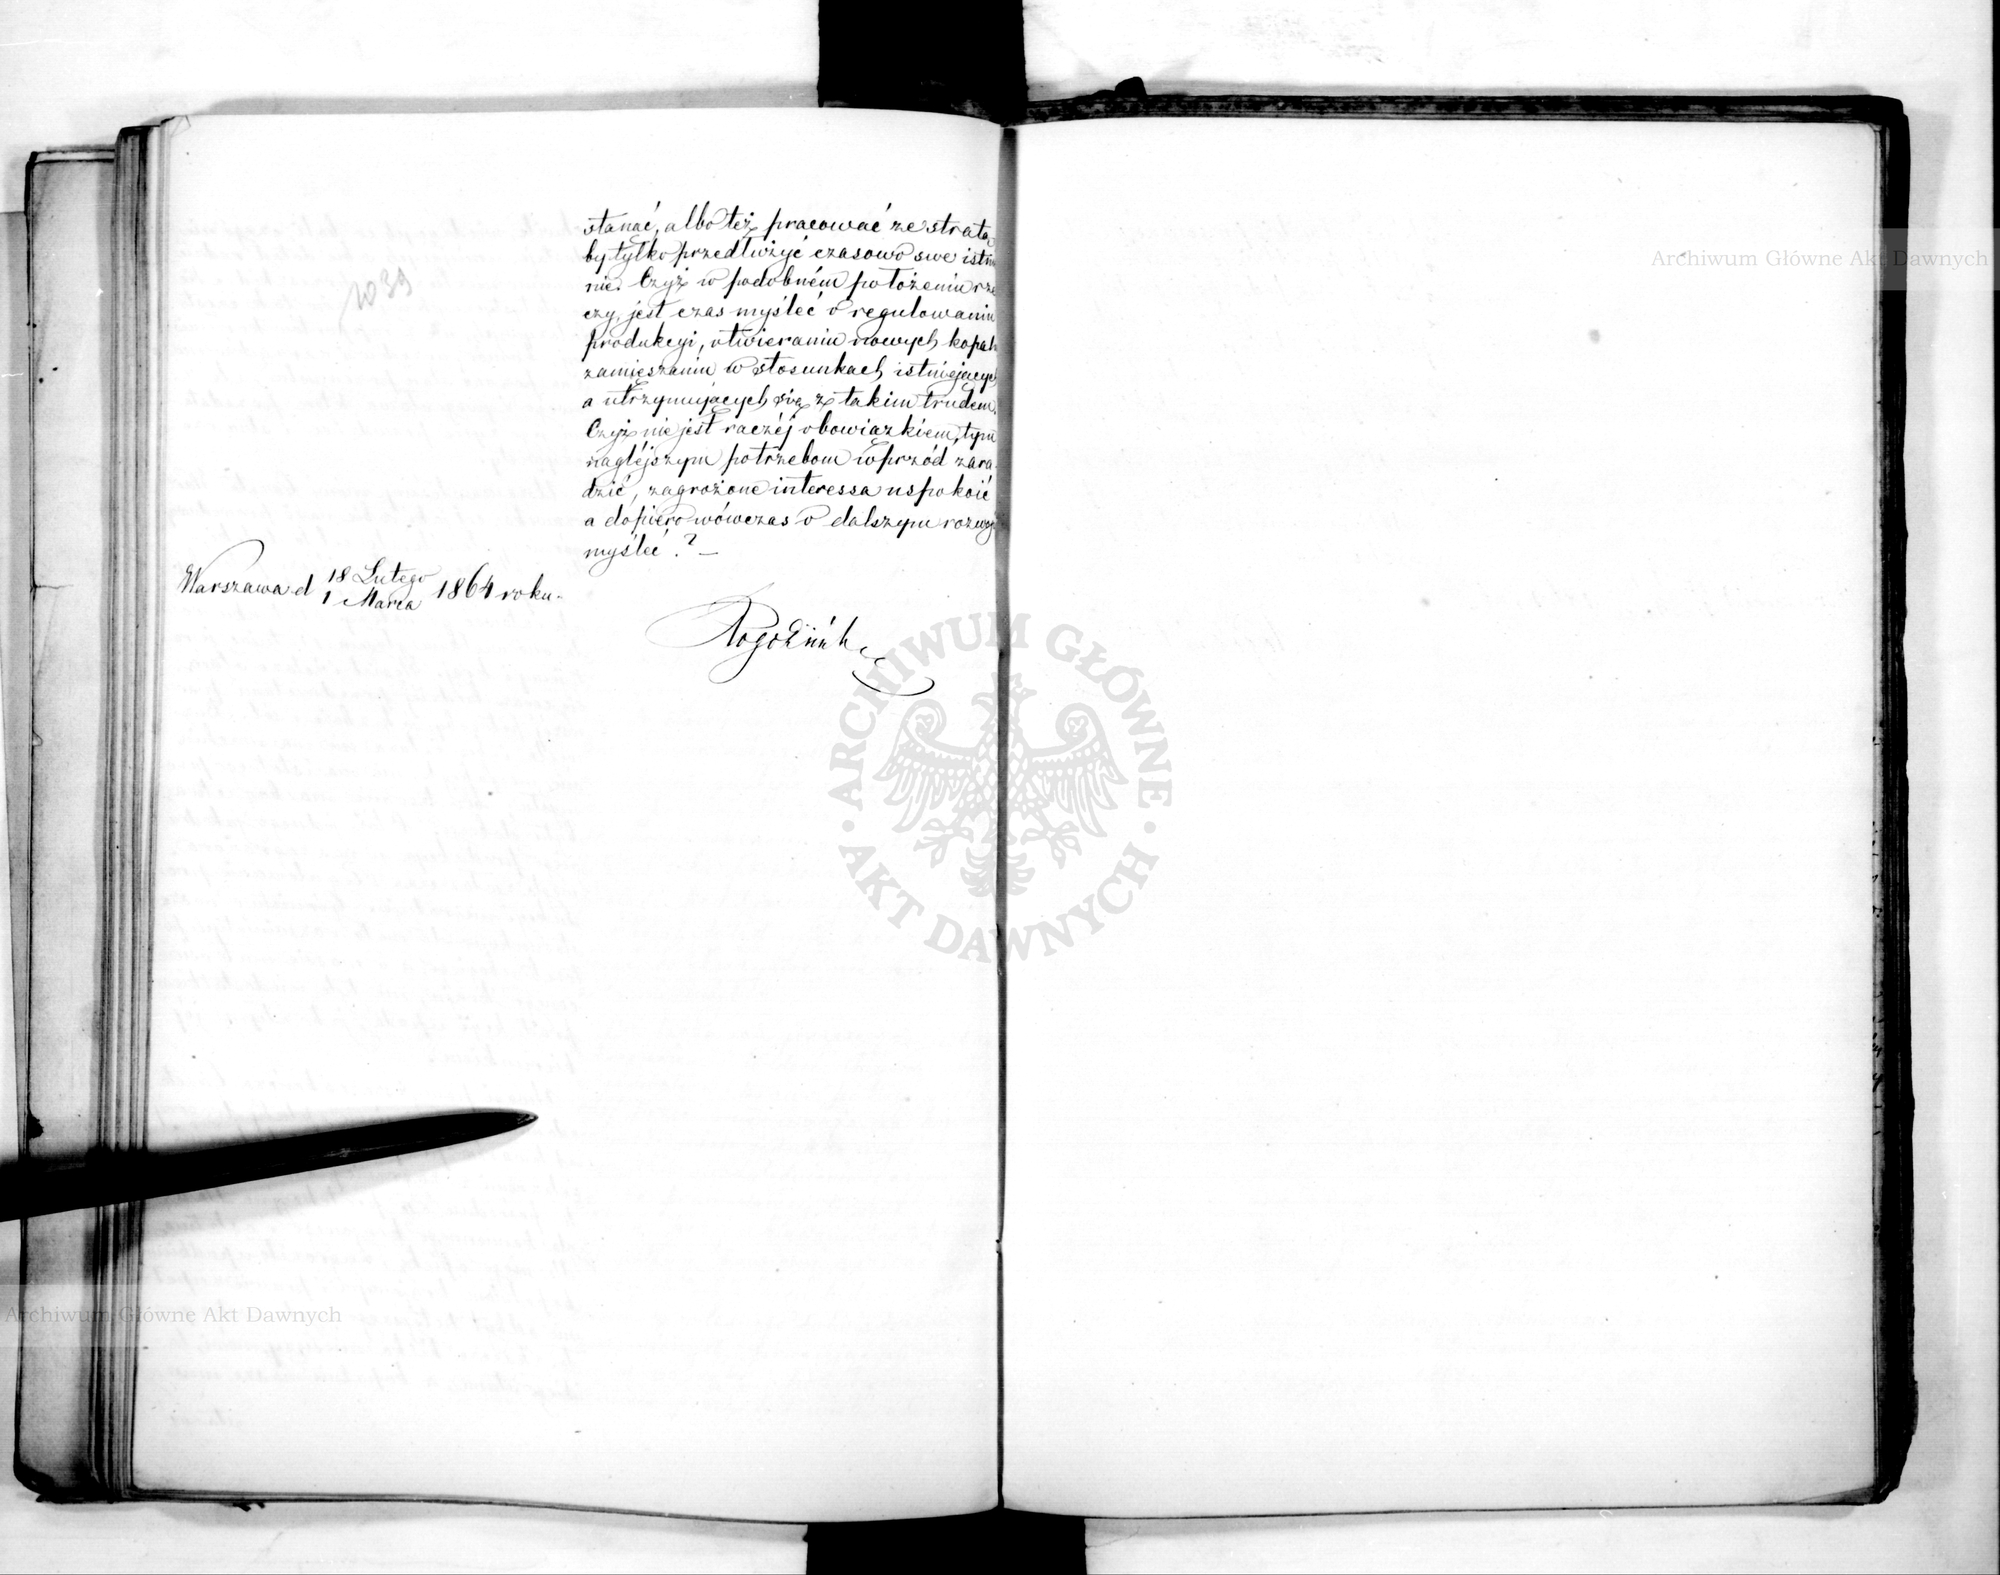 1039
stanąć, albo też pracować ze stratą,
by tylko przedłużyć czasowo swe istn
nie. Czyż w podobném położeniu rze
czy, jest czas myśleć o regulowaniu
produkcyi, otwieraniu nowych kopalń
zamięszaniu w stosunkach istniejących
a utrzymujących się z takim trudem.
Czyż nie jest raczéj obowiązkiem, tym
naglejszym potrzebom wprzód zara-
dzić, zagrożone interessa uspokoić
a dopiero wówczas o dalszym rozwoju
myśleć.?—
Warszawa d 18 Lutego 1864 roku.
1 Marca
Archiwum Główne Akt Dawnych
ARCHIWUM GŁÓWNE
AKT DAWNYCH
Archiwum Główne Akt Dawnych